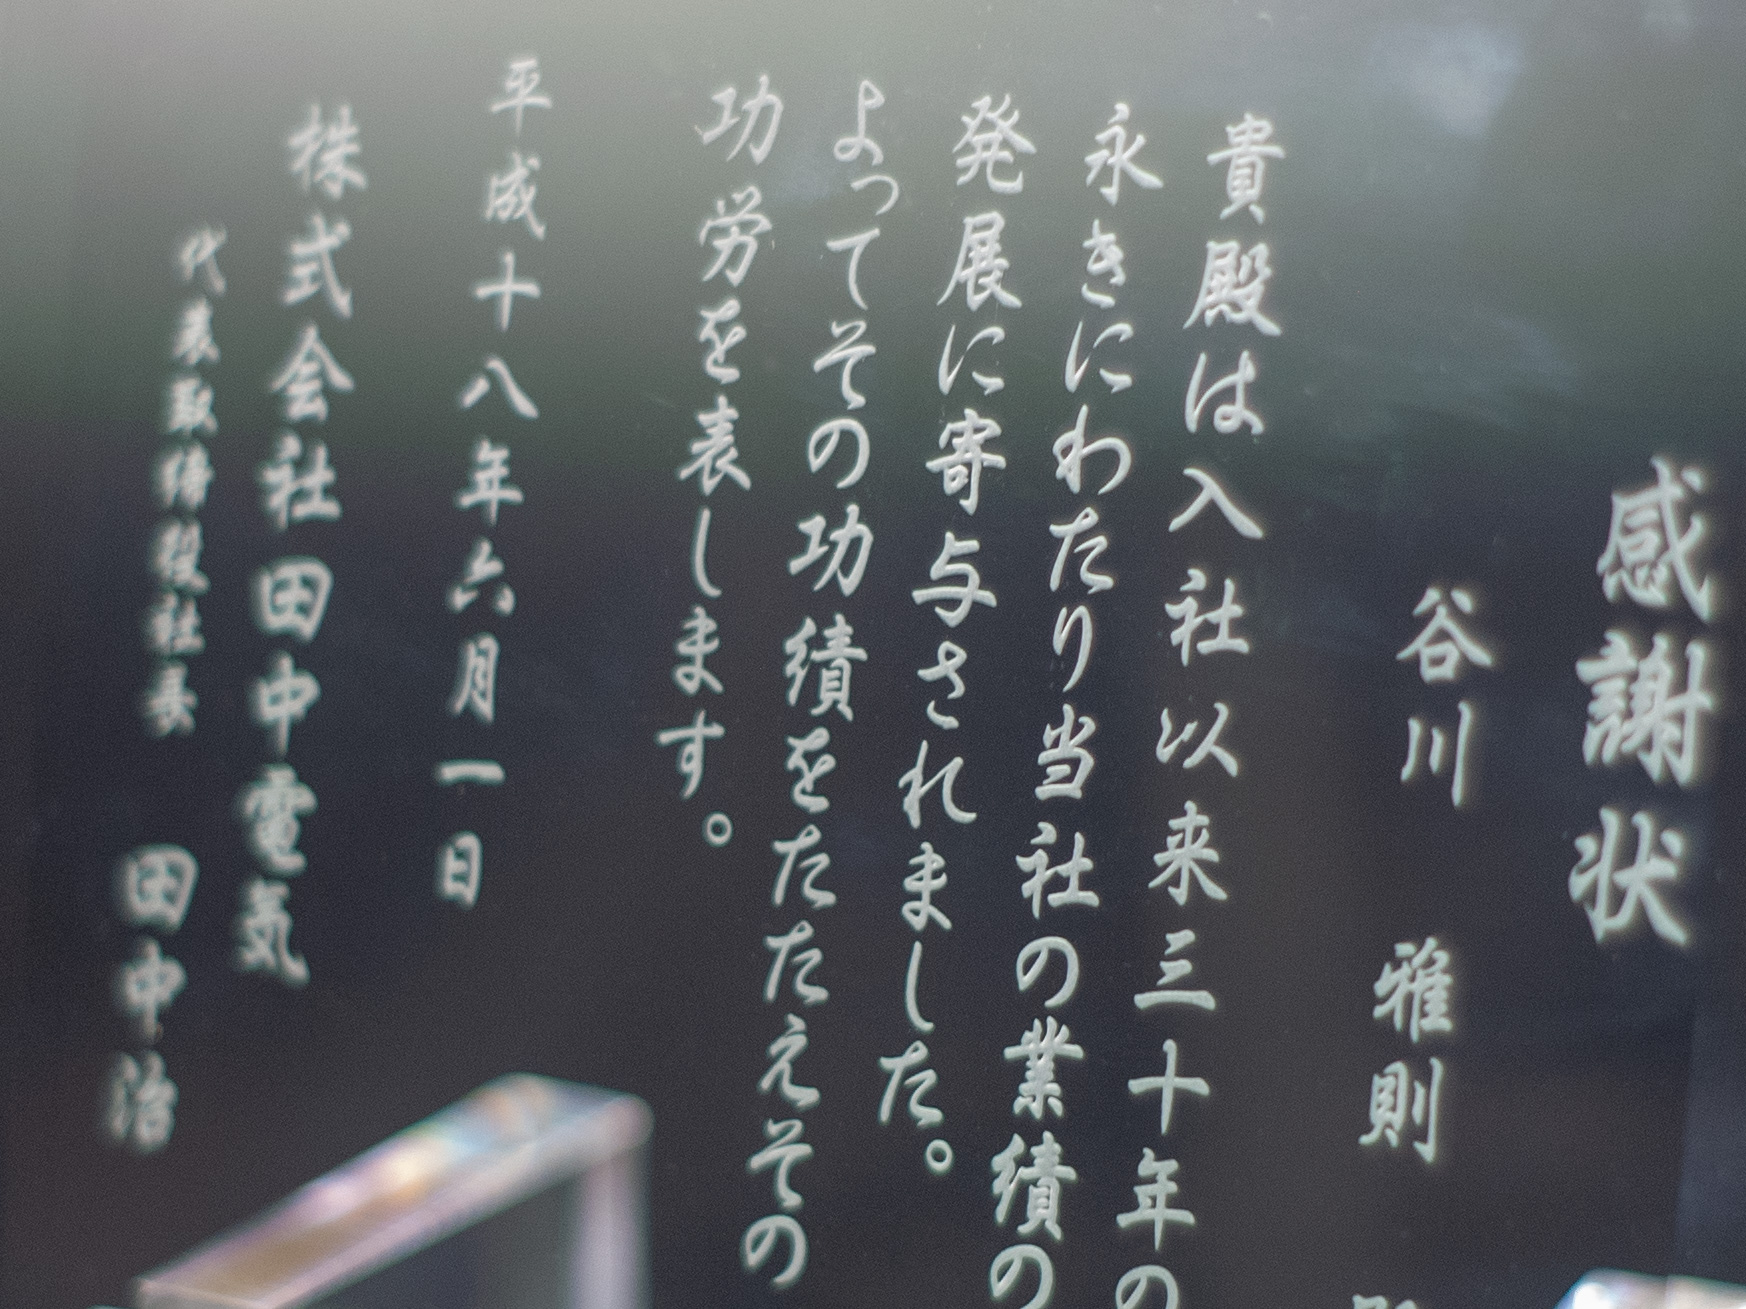 感謝状
谷川 雅則
貴殿は入社以来三十年の
永きにわたり当社の業績の
発展に寄与されました。
よってその功績をたたえその
功労を表します。
平成十八年六月一日
株式会社田中電気
代表取締役社長 田中治